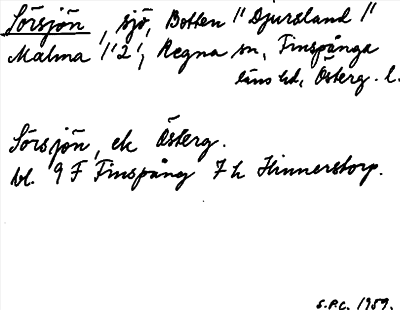 Sörsjön, sjö, Botten 1" Djursland 1"
Malma 1'2', Regna sn, Finspånga
läns hd, Österg. l.
Sörsjön, ek Österg.
bl. 9 F Finspång 7 h Hinnerstorp.
S.P.C. 1959.